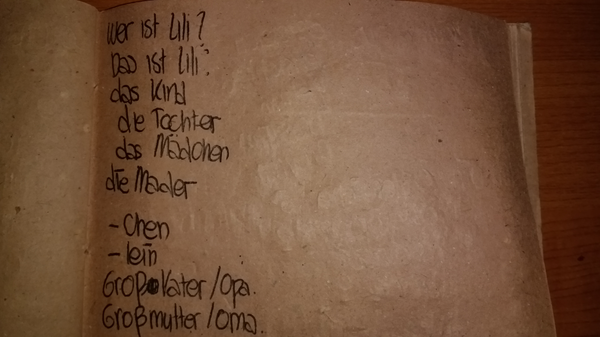 Wer ist Lili?
Das ist Lili:
das Kind
die Tochter
das Mädchen
die Mader
- Chen
- lein
Großvater / Opa.
Großmutter / Oma.